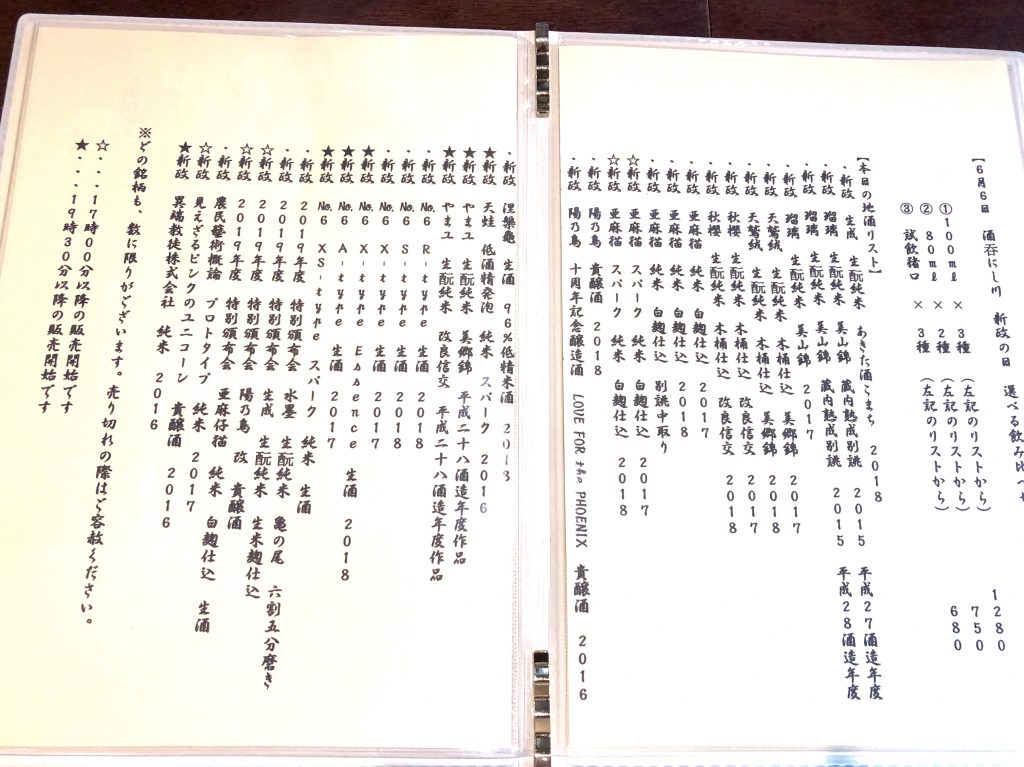 【6月6日 酒呑にし川 新政の日 選べる飲み比べセ
①100ml × 3種 (左記のリストから) 1280
②80ml × 2種 (左記のリストから) 750
③試飲猪口 × 3種 (左記のリストから) 680
【本日の地酒リスト】
・新政 生成 生酛純米 あきた酒こまち 2018
・新政 瑠璃 生酛純米 美山錦 蔵内熟成別誂 2015 平成27酒造年度
・新政 瑠璃 生酛純米 美山錦 蔵内熟成別誂 2015 平成28酒造年度
・新政 瑠璃 生酛純米 美山錦 2017
・新政 天鷲絨 生酛純米 木桶仕込 美郷錦 2017
・新政 天鷲絨 生酛純米 木桶仕込 美郷錦 2018
・新政 秋櫻 生酛純米 木桶仕込 改良信交 2017
・新政 秋櫻 生酛純米 木桶仕込 改良信交 2018
・新政 亜麻猫 純米 白麹仕込 2017
・新政 亜麻猫 純米 白麹仕込 2018
・新政 亜麻猫 純米 白麹仕込 別誂中取り
☆新政 亜麻猫 スパーク 純米 白麹仕込 2017
☆新政 亜麻猫 スパーク 純米 白麹仕込 2018
・新政 陽乃鳥 貴醸酒 2018
・新政 陽乃鳥 十周年記念醸造酒 LOVE FOR the PHOENIX 貴醸酒 2016
・新政 涅槃龜 生酒 96%低精米酒 2018
★新政 天蛙 低酒精発泡 純米 スパーク 2016
★新政 やまユ 生酛純米 美郷錦 平成二十八酒造年度作品
★新政 やまユ 生酛純米 改良信交 平成二十八酒造年度作品
・新政 No.6 R-type 生酒 2018
・新政 No.6 S-type 生酒 2018
・新政 No.6 X-type 生酒 2017
★新政 No.6 X-type Essence 生酒 2018
★新政 No.6 A-type 生酒 2017
★新政 No.6 XS-type スパーク 純米 生酒
・新政 2019年度 特別頒布会 水墨 生酛純米 亀の尾 六割五分磨き
・新政 2019年度 特別頒布会 生成 生酛純米 生米麹仕込
☆新政 2019年度 特別頒布会 陽乃鳥 改 貴醸酒
☆新政 2019年度 特別頒布会 亜麻仔猫 純米 白麹仕込 生酒
・新政 農民藝術概論 プロトタイプ 純米 2017
☆新政 見えざるピンクのユニコーン 貴醸酒 2016
★新政 異端教徒株式会社 純米 2016
※どの銘柄も、数に限りがございます。売り切れの際はご容赦ください。
☆・・・17時00分以降の販売開始です
★・・・19時30分以降の販売開始です